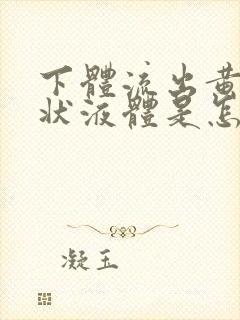 下體流出黃
狀液體是怎
凝玉